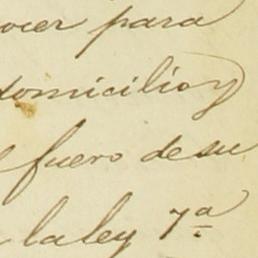 para
domicilio y
fuero de su
la ley 7ª